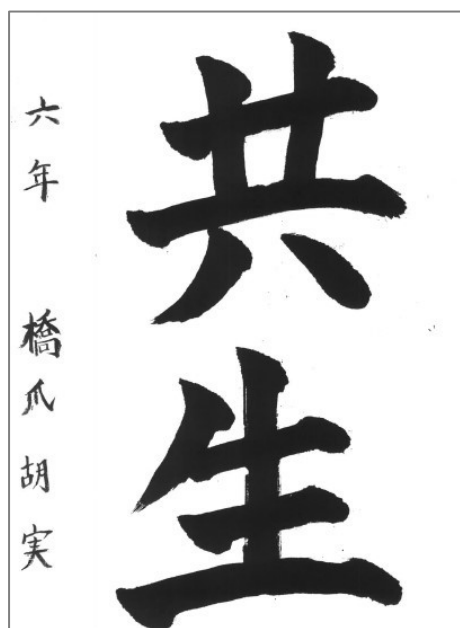 共生
六年 橋爪胡実